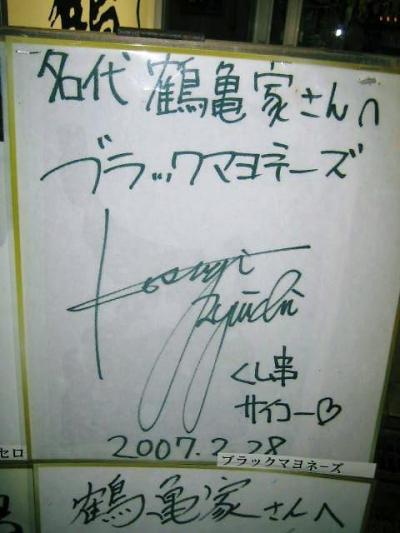 名代 鶴亀家さんへ
ブラックマヨネーズ
Kosugi
Ryuichi
くし串
サイコー♡
2007.2.28
セロ
ブラックマヨネーズ
鶴亀家さんへ